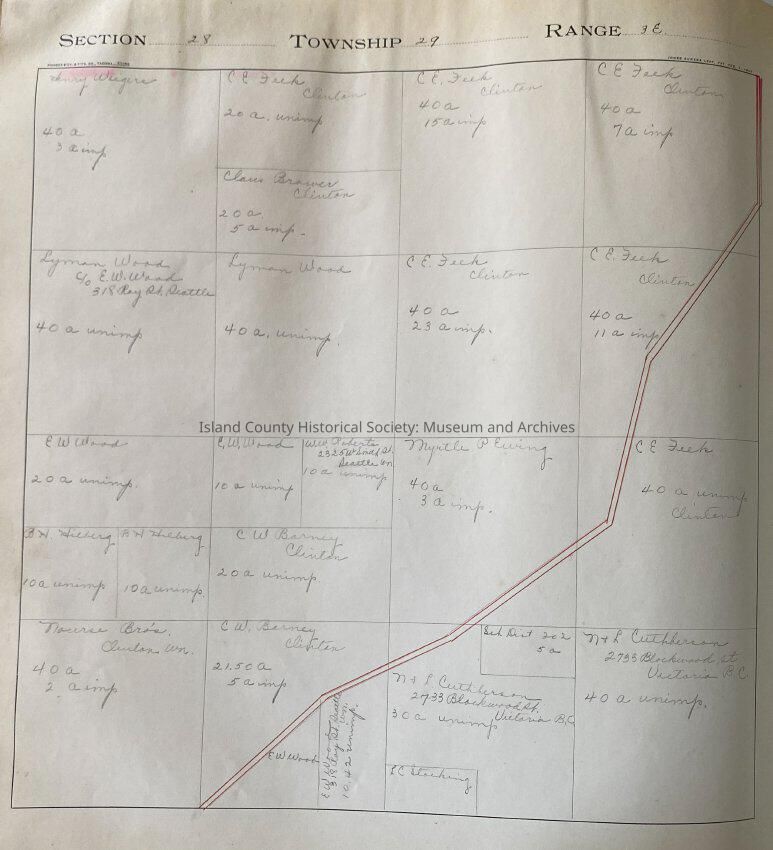 SECTION 28 TOWNSHIP 29 RANGE 3E
Henry Wiegers
40 a
3 a imp
C E Feek
Clinton
20 a. unimp
Claus Brower
Clinton
20 a.
5 a imp.
C E. Feek
Clinton
40 a
15 a imp
C E Feek
Clinton
40 a
7 a imp
Lyman Wood
c/o E. W. Wood
318 Ray St. Seattle
40 a unimp
Lyman Wood
40 a. unimp.
C E. Feek
Clinton
40 a
23 a imp.
C E. Feek
Clinton
40 a
11 a imp
Island County Historical Society: Museum and Archives
E W Wood
20 a unimp.
E. W. Wood
10 a unimp
Roberts
Seattle Wn.
10 a unimp
Myrtle P Ewing
40 a
3 a imp.
C E Feek
40 a unimp
Clinton
B H. Hilberg
10 a unimp
B H Hilberg
10 a unimp.
C W Barney
Clinton
20 a unimp.
Nourse Bro's.
Clinton Wn.
40 a
2 a imp
C. W. Barney
Clinton
21.50 a
5 a imp
E W Wood
E W Wood
318 Ray St. Seattle
Wn.
10.42 unimp.
Sch Dist 202
5 a
N & L Cuthberson
2733 Blackwood St.
Victoria B.C.
30 a unimp
S C Stocking
N & L Cuthberson
2733 Blackwood St
Victoria B.C.
40 a unimp.